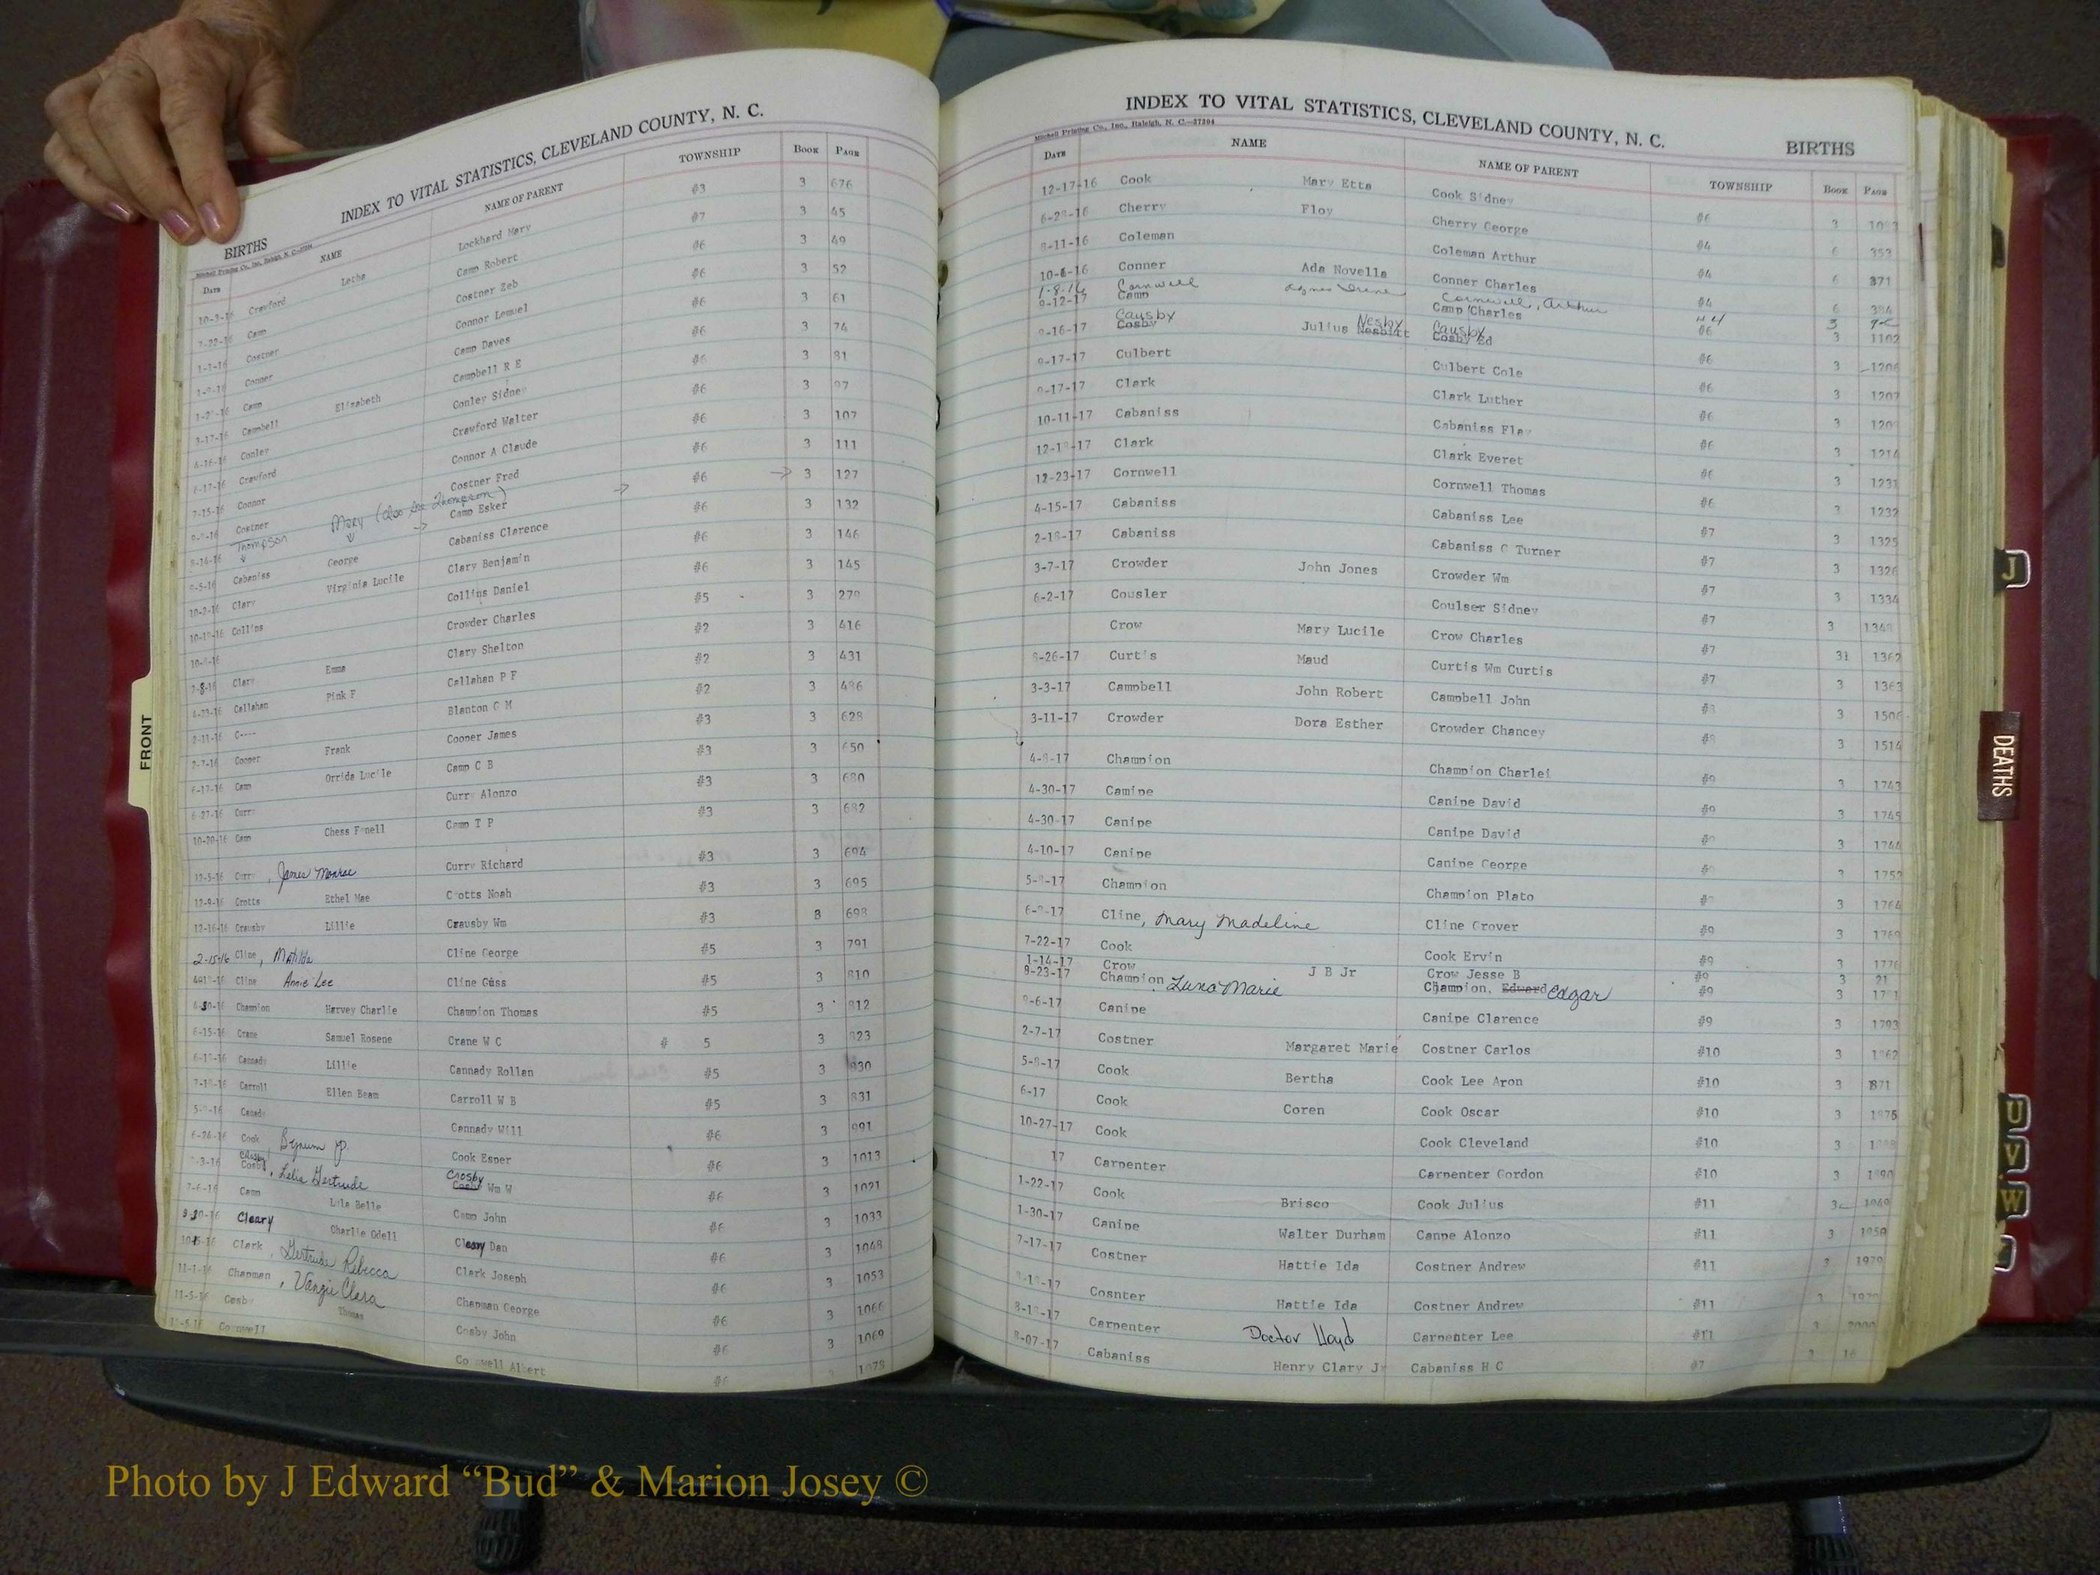 INDEX TO VITAL STATISTICS, CLEVELAND COUNTY, N. C.
BIRTHS
DATE NAME NAME OF PARENT TOWNSHIP BOOK PAGE
Crawford Letha Lockhard Mary #3 3 676
7-22-16 Camp Camp Robert #7 3 45
1-1-16 Costner Costner Zeb #6 3 49
Conner Connor Lemuel #6 3 52
Camp Camp Daves #6 3 61
3-17-16 Campbell Elizabeth Campbell R E #6 3 74
4-16-16 Conley Conley Sidney #6 3 81
6-17-16 Crawford Crawford Walter #6 3 97
7-15-16 Connor Connor A Claude #6 3 107
Costner Costner Fred #6 3 111
8-14-16 Thompson Mary (also see Thompson) Camp Esker #6 3 127
Cabaniss George Cabaniss Clarence #6 3 132
Clary Virginia Lucile Clary Benjamin #6 3 146
Collins Collins Daniel #6 3 145
Crowder Charles #5 3 279
Clary Emma Clary Shelton #2 3 416
Callahan Pink F Callahan P F #2 3 431
2-11-16 C---- Blanton G M #2 3 496
2-7-16 Cooper Frank Cooper James #3 3 628
6-17-16 Camp Orrida Lucile Camp C B #3 3 650
6-27-16 Curry Curry Alonzo #3 3 680
10-20-16 Camp Chess Camp T P #3 3 682
12-5-16 Curry, James Monroe Curry Richard #3 3 694
12-9-16 Crotts Ethel Mae Crotts Noah #3 3 695
12-16-16 Crausby Lillie Crausby Wm #3 3 698
2-15-16 Cline, Matilda Cline George #5 3 791
Cline Annie Lee Cline Guss #5 3 810
4-30-16 Champion Harvey Charlie Champion Thomas #5 3 812
6-15-16 Crane Samuel Rosene Crane W C # 5 3 823
Cannady Lillie Cannady Rollan #5 3 830
Carroll Ellen Beam Carroll W B #5 3 831
Canady Cannady Will #6 3 991
6-24-16 Cook Bynum Jr. Cook Esper #6 3 1013
Crosby, Lelia Gertrude Crosby Wm W #6 3 1021
7-6-16 Camp Lula Belle Camp John #6 3 1033
9-30-16 Cleary Charlie Odell Cleary Dan #6 3 1048
Clark, Gertrude Rebecca Clark Joseph #6 3 1053
11-1-16 Chapman, Vangie Clara Chapman George #6 3 1066
11-5-16 Cosby Thomas Cosby John #6 3 1069
Cornwell Cornwell Albert #6 1073
INDEX TO VITAL STATISTICS, CLEVELAND COUNTY, N. C.
Mitchell Printing Co., Inc., Raleigh, N. C.—37204
BIRTHS
DATE NAME NAME OF PARENT TOWNSHIP BOOK PAGE
12-17-16 Cook Mary Etta Cook Sidney #6 3
6-28-16 Cherry Floy Cherry George #4 6 353
8-11-16 Coleman Coleman Arthur #4 6 371
10-6-16 Conner Ada Novella Conner Charles #4 6
1-8-16 Cornwell Agnes Irene Cornwell, Arthur #4 3
9-12-17 Camp Camp Charles #6 3 1102
9-16-17 Causby Cosby Julius Nesby Nesbitt Causby Cosby Ed #6 3 1206
9-17-17 Culbert Culbert Cole #6 3 1207
9-17-17 Clark Clark Luther #6 3
10-11-17 Cabaniss Cabaniss Flay #6 3 1214
Clark Clark Everet #6 3 1231
12-23-17 Cornwell Cornwell Thomas #6 3 1232
4-15-17 Cabaniss Cabaniss Lee #7 3 1325
Cabaniss Cabaniss C Turner #7 3 1326
3-7-17 Crowder John Jones Crowder Wm #7 3 1334
6-2-17 Cousler Coulser Sidney #7 3
Crow Mary Lucile Crow Charles #7 31 1362
8-26-17 Curtis Maud Curtis Wm Curtis #7 3 1363
3-3-17 Campbell John Robert Campbell John #8 3 1506
3-11-17 Crowder Dora Esther Crowder Chancey #8 3 1514
Champion Champion Charlei #9 3 1743
4-30-17 Camipe Canipe David #9 3 1745
4-30-17 Canipe Canipe David #9 3 1744
4-10-17 Canipe Canipe George #9 3
Champion Champion Plato #9 3 1764
Cline, Mary Madeline Cline Grover #9 3 1769
7-22-17 Cook Cook Ervin #9 3 1776
1-14-17 Crow J B Jr Crow Jesse B #9 3 21
9-23-17 Champion, Luna Marie Champion, Edward Edgar #9 3
Canipe Canipe Clarence #9 3 1793
2-7-17 Costner Margaret Marie Costner Carlos #10 3
Cook Bertha Cook Lee Aron #10 3
6-17 Cook Coren Cook Oscar #10 3
10-27-17 Cook Cook Cleveland #10 3
17 Carpenter Carpenter Gordon #10 3
1-22-17 Cook Brisco Cook Julius #11
1-30-17 Canipe Walter Durham Canpe Alonzo #11 3
7-17-17 Costner Hattie Ida Costner Andrew #11 3
Cosnter Hattie Ida Costner Andrew #11 3
Carpenter Doctor Lloyd Carpenter Lee #11 3 2000
8-07-17 Cabaniss Henry Clary Jr Cabaniss H C #7 3 16
FRONT
J
DEATHS
U
V
W
Photo by J Edward “Bud” & Marion Josey ©